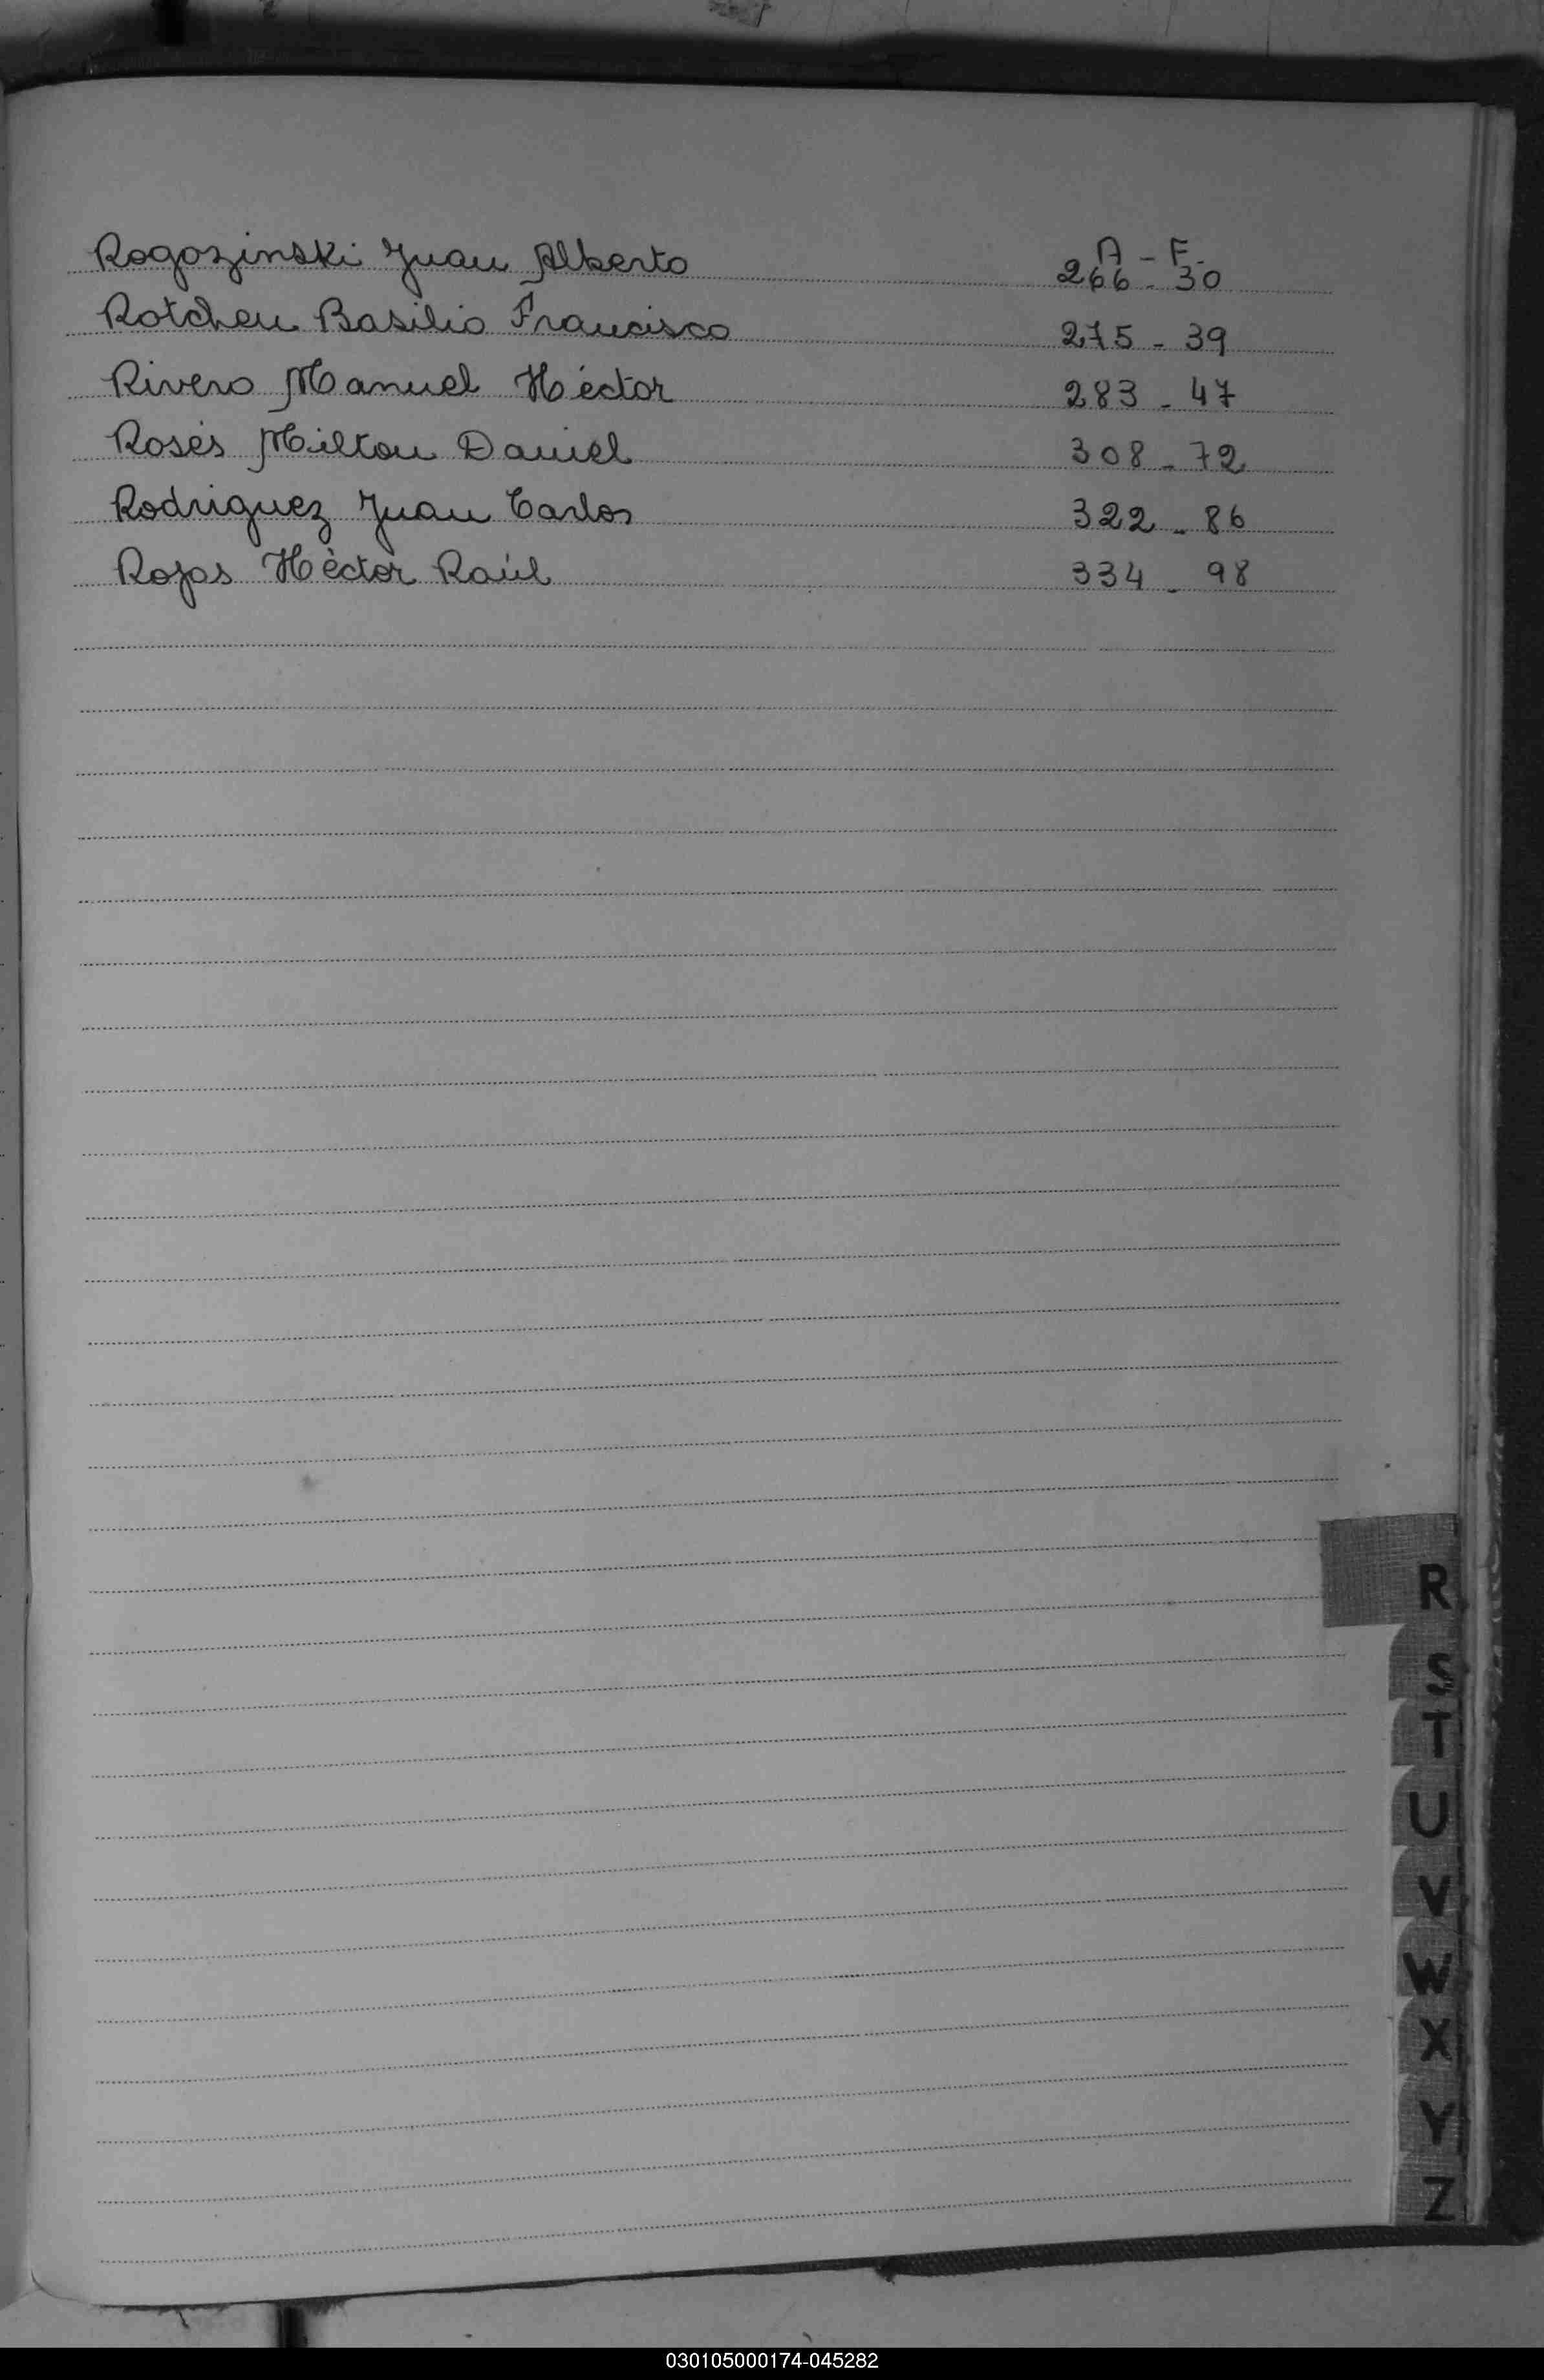 A - F
Rogozinski Juan Alberto 266 - 30
Rotchen Basilio Francisco 275 - 39
Rivero Manuel Héctor 283 - 47
Rosés Milton Daniel 308 - 72
Rodriguez Juan Carlos 322 - 86
Rojas Hèctor Raúl 334 - 98
R
S
T
U
V
W
X
Y
Z
030105000174-045282